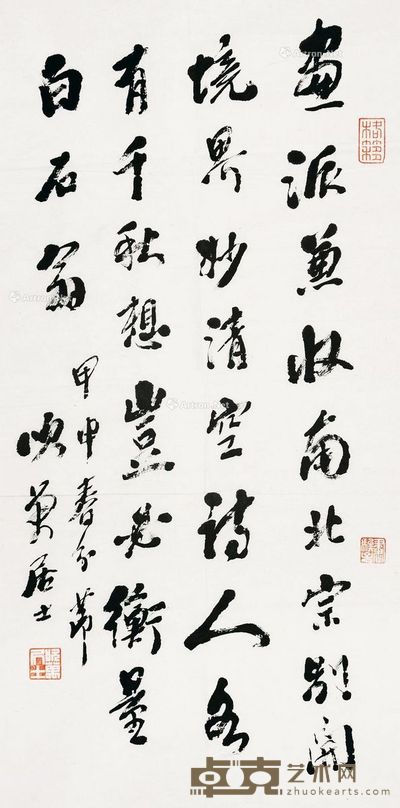 畫派兼收南北宗別開
境界妙清空詩人各
有千秋想豈必衡量
白石翁
甲申春分節
吹萬居士
卓克艺术网
zhuokearts.com